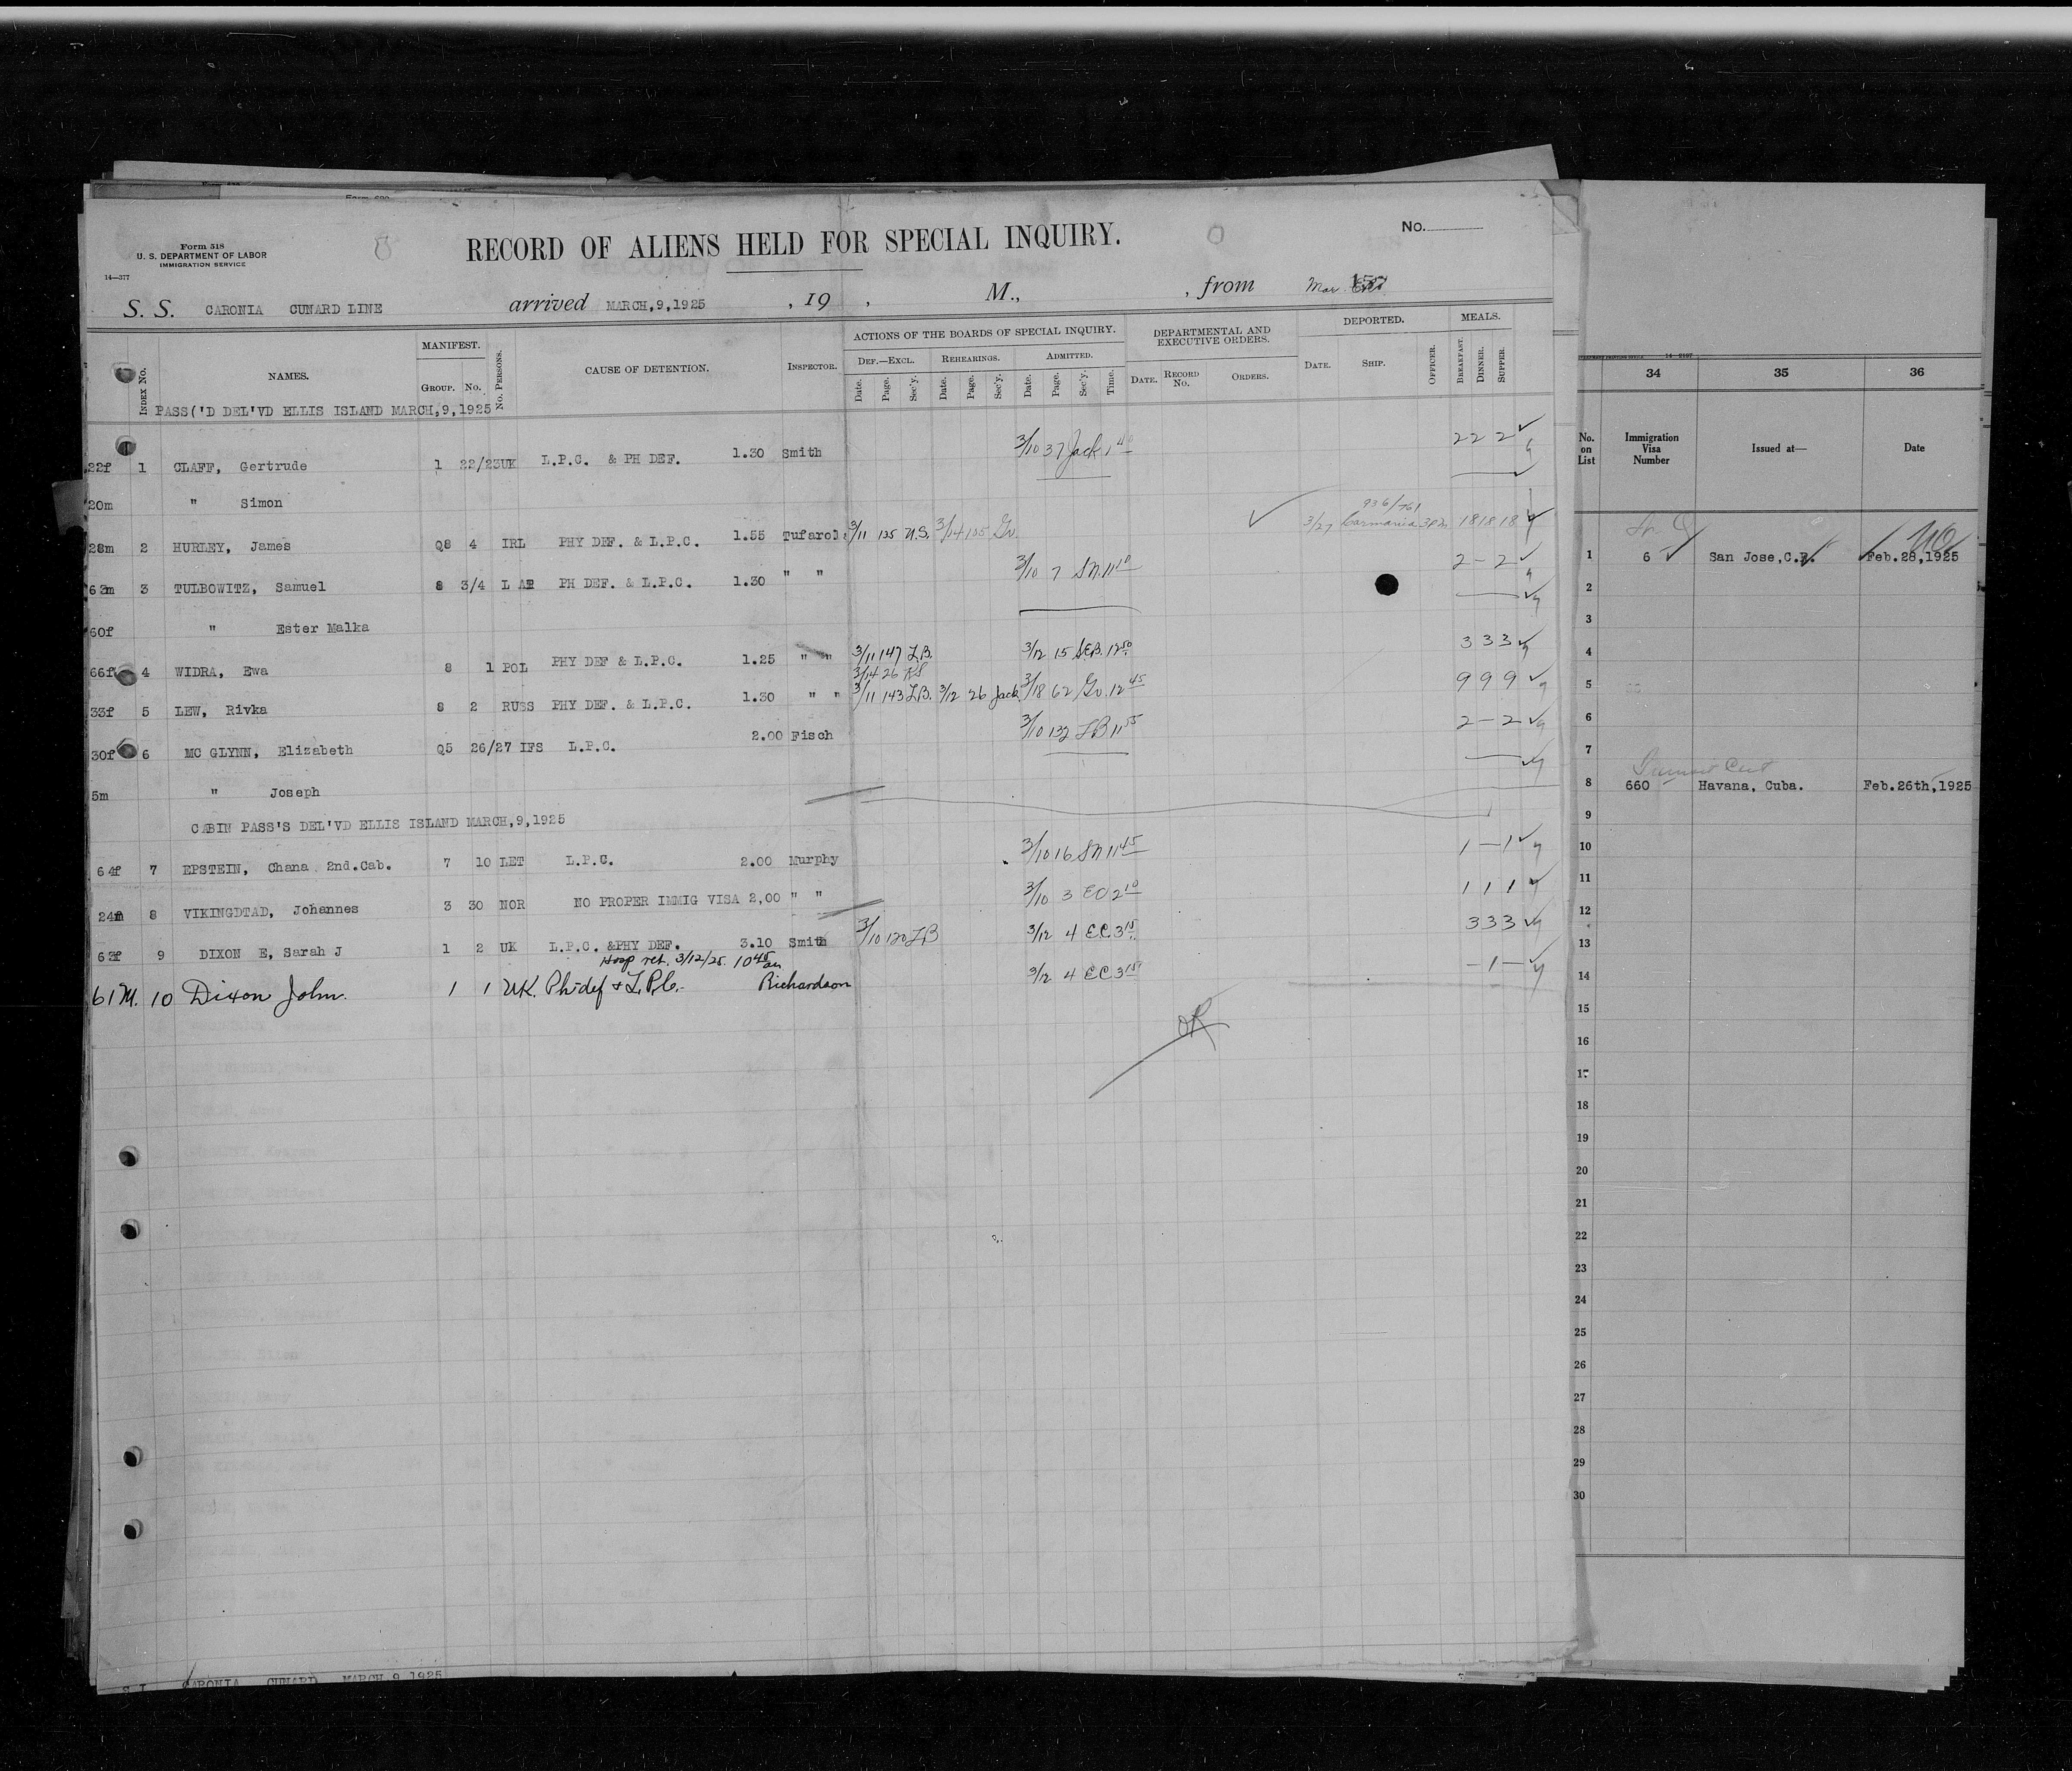 Form 518
U. S. DEPARTMENT OF LABOR
IMMIGRATION SERVICE
14—377
RECORD OF ALIENS HELD FOR SPECIAL INQUIRY.
No.
S. S. CARONIA CUNARD LINE arrived MARCH,9,1925 , 19 , M., , from Mar.
INDEX No. NAMES. MANIFEST. GROUP. No. No. PERSONS. CAUSE OF DETENTION. INSPECTOR.
ACTIONS OF THE BOARDS OF SPECIAL INQUIRY. DEF.—EXCL. REHEARINGS. ADMITTED.
Date. Page. Sec'y. Date. Page. Sec'y. Date. Page. Sec'y. Time.
DEPARTMENTAL AND EXECUTIVE ORDERS. DATE. RECORD No. ORDERS.
DEPORTED. DATE. SHIP. OFFICER.
MEALS. BREAKFAST. DINNER. SUPPER.
PASS('D DEL'VD ELLIS ISLAND MARCH,9,1925
22f 1 CLAFF, Gertrude 1 22/23UK L.P.C. & PH DEF. 1.30 Smith 3/10 37 Jack 1 2 2 2
20m " Simon
28m 2 HURLEY, James Q8 4 IRL PHY DEF. & L.P.C. 1.55 Tufarol 3/11 135 N.S. 3/14 105 Gv. 3/27 936/761 Carmania 3pm 18 18 18
63m 3 TULBOWITZ, Samuel 8 3/4 L PH DEF. & L.P.C. 1.30 " " 3/10 7 SN 11 10 2 – 2
60f " Ester Malka
66f 4 WIDRA, Ewa 8 1 POL PHY DEF & L.P.C. 1.25 " " 3/11 147 L.B. 3/12 15 SEB. 12 50 3 3 3
3/14 26 KS
33f 5 LEW, Rivka 8 2 RUSS PHY DEF. & L.P.C. 1.30 " " 3/11 143 L.B. 3/12 26 Jack 3/18 62 Gv. 12 45 9 9 9
30f 6 MC GLYNN, Elizabeth Q5 26/27 IFS L.P.C. 2.00 Fisch 3/10 132 LB 11 55 2 – 2
5m " Joseph
CABIN PASS'S DEL'VD ELLIS ISLAND MARCH,9,1925
64f 7 EPSTEIN, Chana 2nd.Cab. 7 10 LET L.P.C. 2.00 Murphy 3/10 16 SN 11 45 1 – 1
24m 8 VIKINGDTAD, Johannes 3 30 NOR NO PROPER IMMIG VISA 2,00 " " 3/10 3 EC 2 10 1 1 1
63f 9 DIXON E, Sarah J 1 2 UK L.P.C. &PHY DEF. 3.10 Smith 3/10 120 LB 3/12 4 EC 3 15 3 3 3
Hosp ret. 3/12/25. 10 45 am
61M. 10 Dixon John. 1 1 UK. Ph. def & L.P.C. Richardson 3/12 4 EC 3 15 – 1 –
OK
S I CARONIA CUNARD MARCH 9 1925
14—2197
34 35 36
No. on List
Immigration Visa Number
Issued at—
Date
1 6 San Jose,C.R. Feb.28,1925
2
3
4
5
6
7
8 660 Havana, Cuba. Feb.26th,1925
9
10
11
12
13
14
15
16
17
18
19
20
21
22
23
24
25
26
27
28
29
30